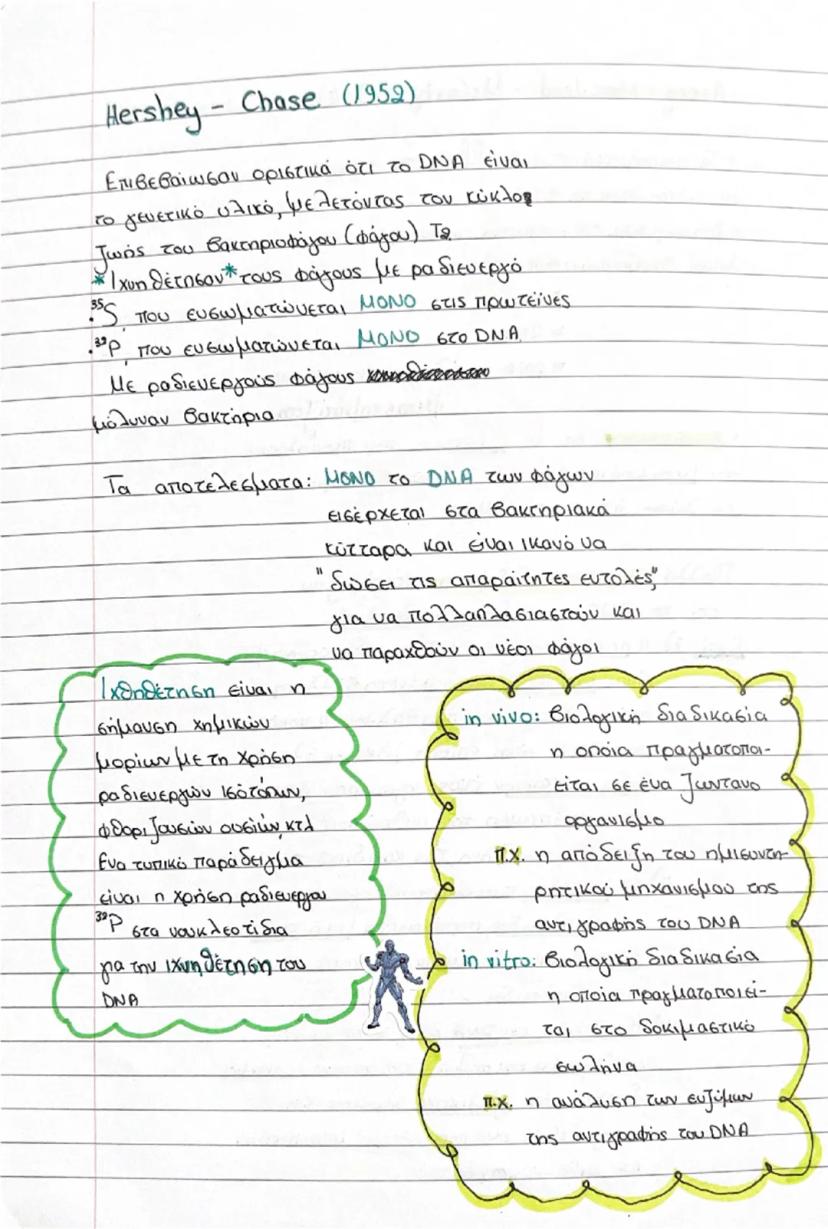 Hershey - Chase (1952)
Επιβεβαίωσαν οριστικά ότι το DNA είναι
το γενετικό υλικό, μελετόντας τον κύκλο
ζωής του βακτηριοφάγου (φάγου) T2
*Ιχνηθέτησαν* τους φάγους με ραδιενεργό
.³⁵S, που ενσωματώνεται ΜΟΝΟ στις πρωτεΐνες
.³²P, που ενσωματώνεται ΜΟΝΟ στο DNA
Με ραδιενεργούς φάγους
μόλυναν βακτήρια
Τα αποτελέσματα: ΜΟΝΟ το DNA των φάγων
εισέρχεται στα βακτηριακά
κύτταρα και είναι ικανό να
"δώσει τις απαραίτητες εντολές"
για να πολλαπλασιαστούν και
να παραχθούν οι νέοι φάγοι
Ιχθηθέτηση είναι η
σήμανση χημικών
μορίων με τη χρήση
ραδιενεργών ισοτόπων,
φθοριζουσών ουσιών, κτλ
Ένα τυπικό παράδειγμα
είναι η χρήση ραδιενεργου
³²P στα νουκλεοτίδια
για την ιχνηθέτηση του
DNA
in vivo: βιολογική διαδικασία
η οποία πραγματοπα-
είται σε ένα ζωντανο
οργανισμο
π.χ. η απόδειξη του ημισυντη-
ρητικού μηχανισμού της
αντιγραφής του DNA
in vitro: βιολογική διαδικασία
η οποία πραγματοποιεί-
ται στο δοκιμαστικό
σωλήνα
π.χ. η ανάλυση των ενζύμων
της αντιγραφής του DNA